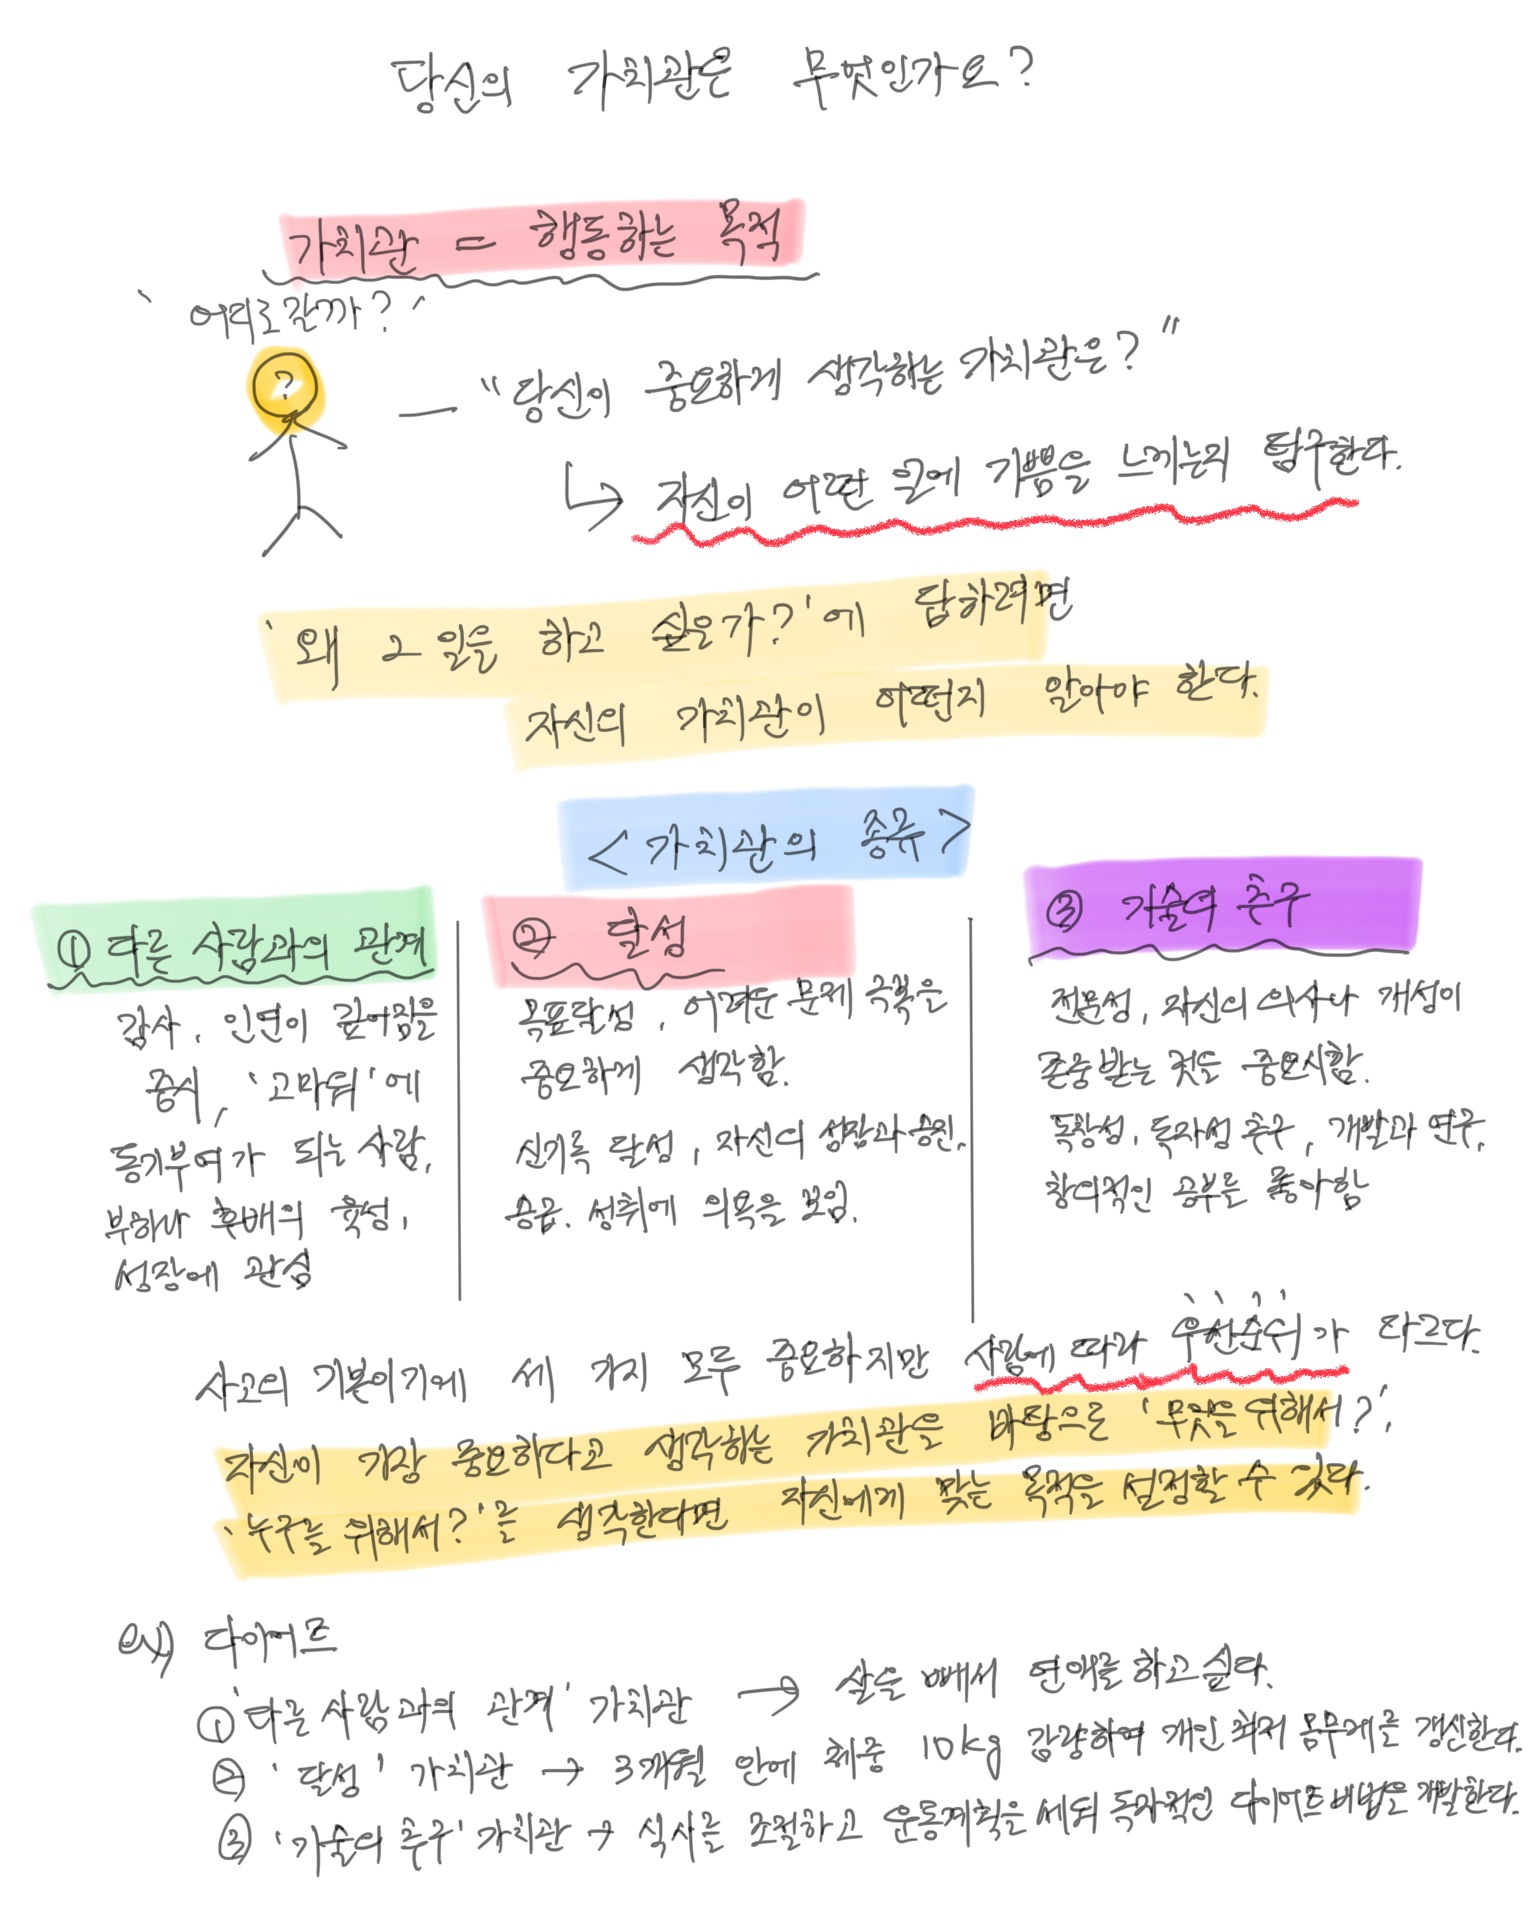 당신의 가치관은 무엇인가요?
가치관 = 행동하는 목적
'어디로갈까?'
?
— "당신이 중요하게 생각하는 가치관은?"
↳ 자신이 어떤 일에 기쁨을 느끼는지 탐구한다.
'왜 그 일을 하고 싶은가?'에 답하려면
자신의 가치관이 어떤지 알아야 한다.
<가치관의 종류>
① 다른 사람과의 관계
감사, 인연이 깊어짐을
중시, '고마워'에
동기부여가 되는 사람,
부하나 후배의 육성,
성장에 관심
② 달성
목표달성, 어려운 문제 극복을
중요하게 생각함.
신기록 달성, 자신의 성장과 승진,
승급, 성취에 의욕을 보임.
③ 기술의 추구
전문성, 자신의 의사나 개성이
존중받는 것을 중요시함.
독창성, 독자성 추구, 개발과 연구,
창의적인 공부를 좋아함
사고의 기본이기에 세 가지 모두 중요하지만 사람에 따라 우선순위가 다르다.
자신이 가장 중요하다고 생각하는 가치관을 바탕으로 '무엇을 위해서?',
'누구를 위해서?'를 생각한다면 자신에게 맞는 목적을 설정할 수 있다.
ex) 다이어트
① '다른 사람과의 관계' 가치관 → 살을 빼서 연애를 하고 싶다.
② '달성' 가치관 → 3개월 안에 체중 10kg 감량하여 개인 최저 몸무게를 갱신한다.
③ '기술의 추구' 가치관 → 식사를 조절하고 운동계획을 세워 독자적인 다이어트비법을 개발한다.